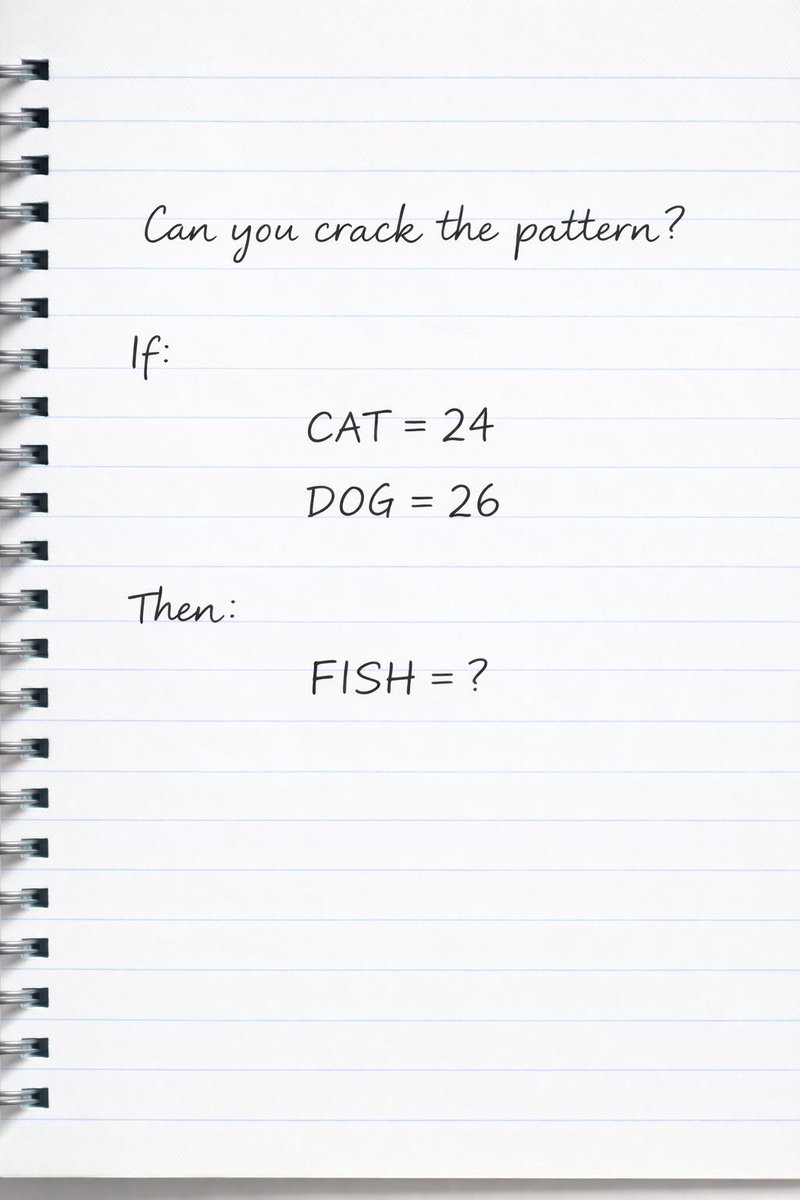 Can you crack the pattern?
If:
CAT = 24
DOG = 26
Then:
FISH = ?